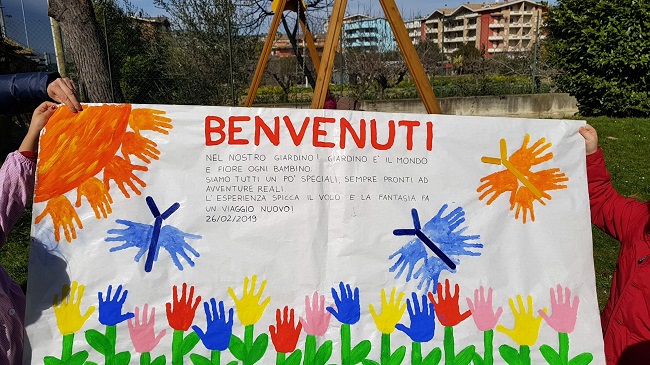 BENVENUTI
NEL NOSTRO GIARDINO! GIARDINO E' IL MONDO
E FIORE OGNI BAMBINO.
SIAMO TUTTI UN PO' SPECIALI, SEMPRE PRONTI AD
AVVENTURE REALI.
L'ESPERIENZA SPICCA IL VOLO E LA FANTASIA FA
UN VIAGGIO NUOVO!
26/02/2019